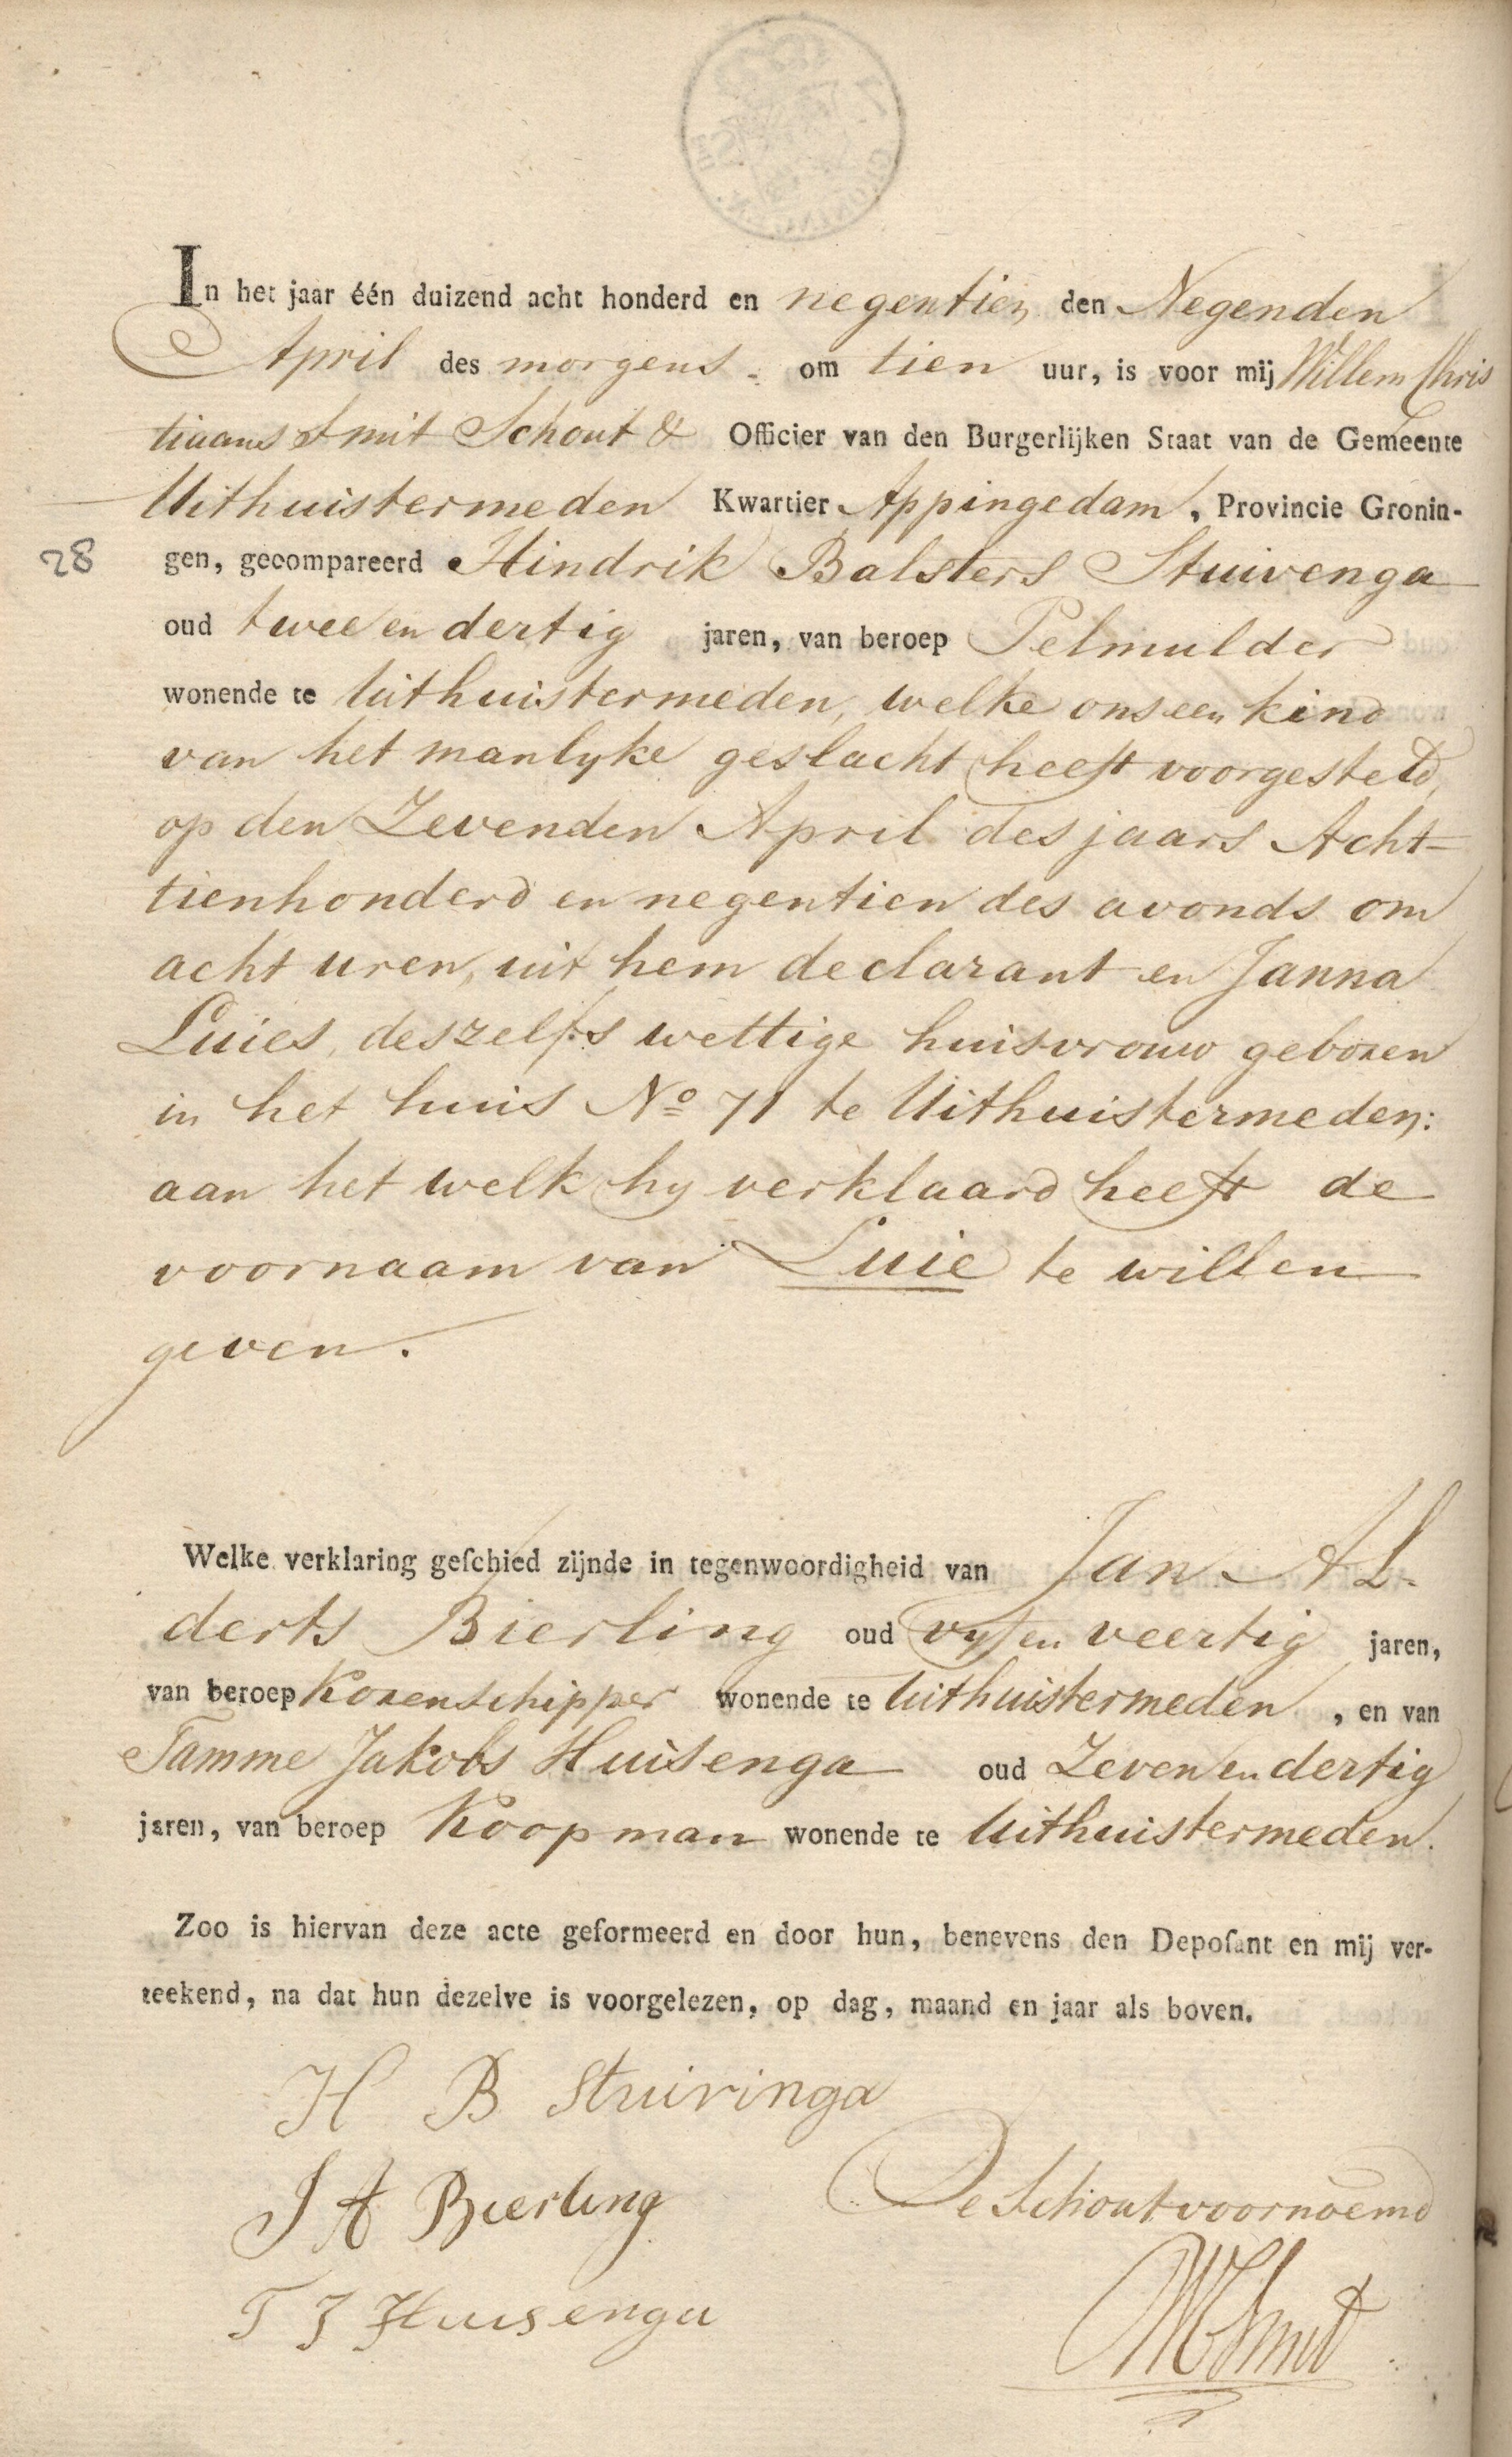 In het jaar één duizend acht honderd en negentien den Negenden
April des morgens om tien uur, is voor mij Willem Chris
tiaans Smit Schout & Officier van den Burgerlijken Staat van de Gemeente
Uithuistermeden Kwartier Appingedam, Provincie Gronin-
28 gen, gecompareerd Hindrik Balsters Stuivenga
oud twee en dertig jaren, van beroep Pelmulder
wonende te Uithuistermeden, welke ons een kind
van het manlyke geslacht heeft voorgesteld,
op den Zevenden April des jaars Acht-
tienhonderd en negentien des avonds om
acht uren, uit hem declarant en Janna
Luies, deszelfs wettige huisvrouw geboren
in het huis No 71 te Uithuistermeden:
aan het welk hy verklaard heeft de
voornaam van Luie te willen
geven.
Welke verklaring geſchied zijnde in tegenwoordigheid van Jan Al-
derts Bierling oud vyf en veertig jaren,
van beroep Korenschipper wonende te Uithuistermeden, en van
Tamme Jakobs Huisenga oud Zeven en dertig
jaren, van beroep Koopman wonende te Uithuistermeden.
Zoo is hiervan deze acte geformeerd en door hun, benevens den Depoſant en mij ver-
teekend, na dat hun dezelve is voorgelezen, op dag, maand en jaar als boven.
H B Stuivinga
J A Bierling
De Schout voornoemd
T J Huisenga
WCSmit